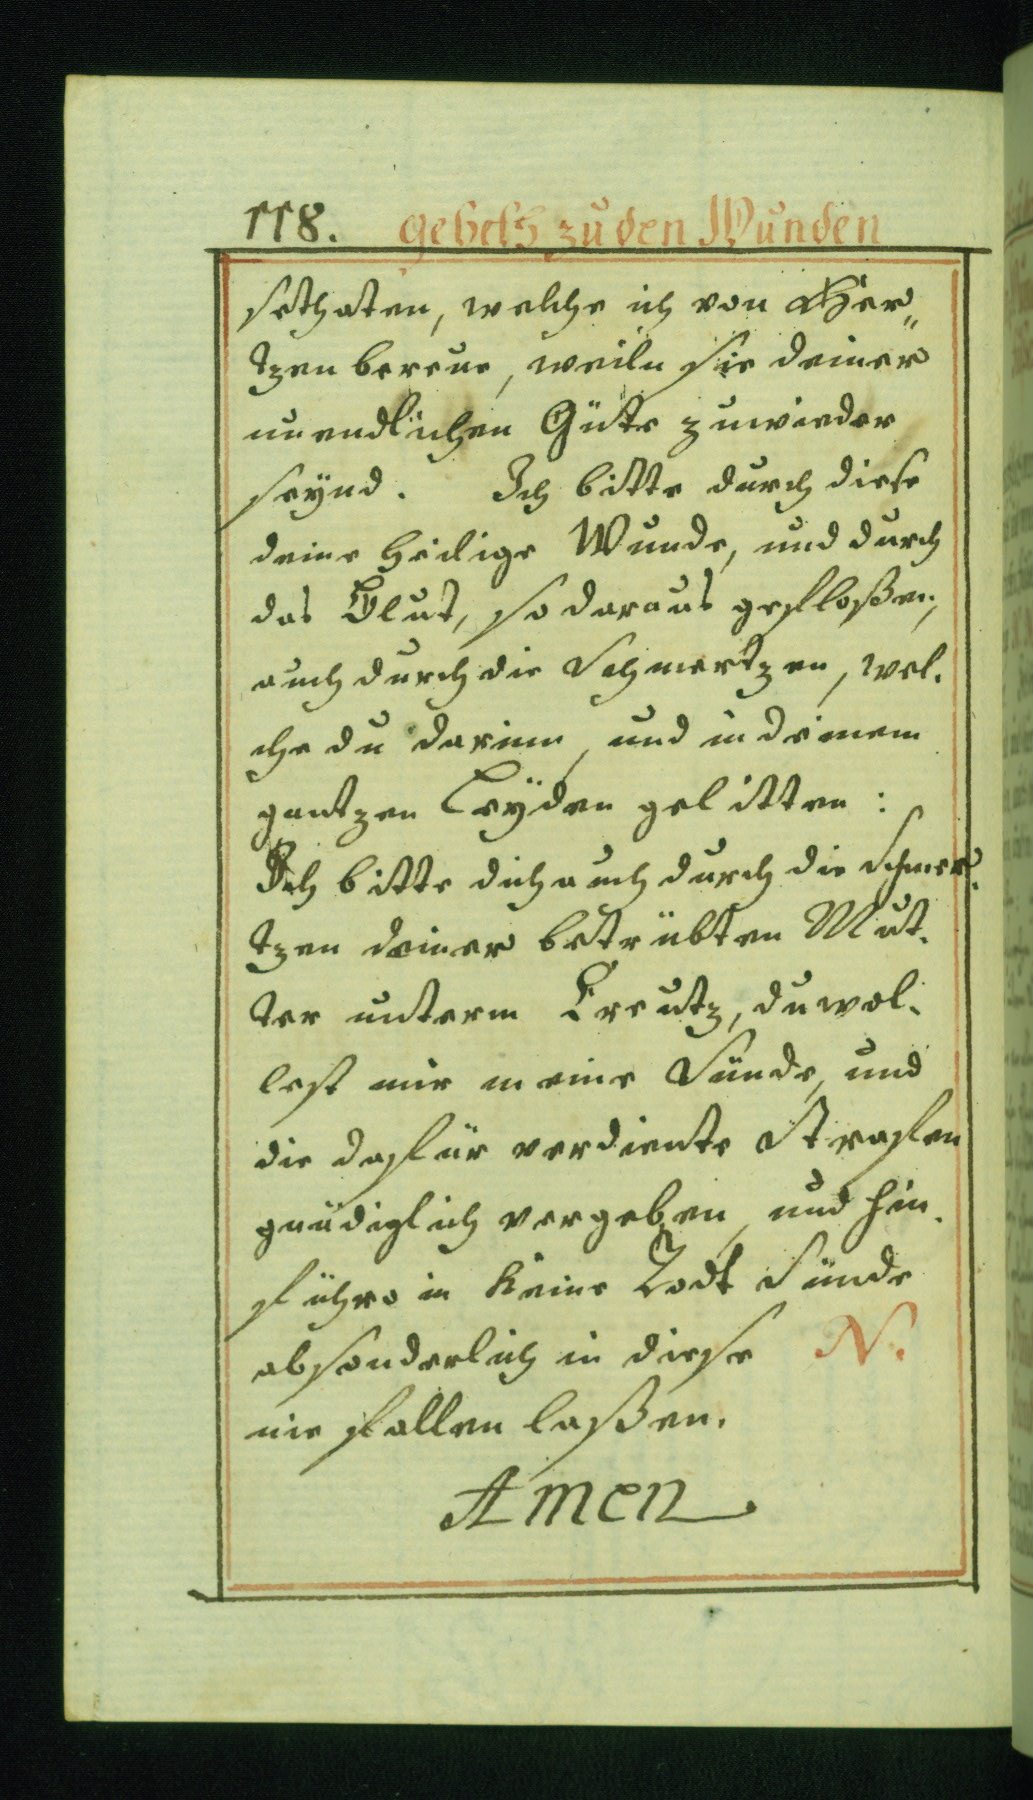 118. Gebeth zu den Wunden
sethaten, welche ich von Her„
tzen bereue, weiln sie deiner
unendlichen Güte zuwieder
seynd. Ich bitte durch diese
deine heilige Wunde, und durch
das Blut, so daraus gefloßen,
auch durch die Schmertzen, wel.
che du darinn, und in deinem
gantzen Leÿden gelitten :
Ich bitte dich auch durch die Schmer.
tzen deiner betrübten Mut.
ter unterm Creutz, du wol.
lest mir meine Sünde, und
die dafür verdiente Strafen
gnädiglich vergeben, und hin.
führo in keine Todt Sünde
absonderlich in diese N.
nie fallen laßen.
Amen